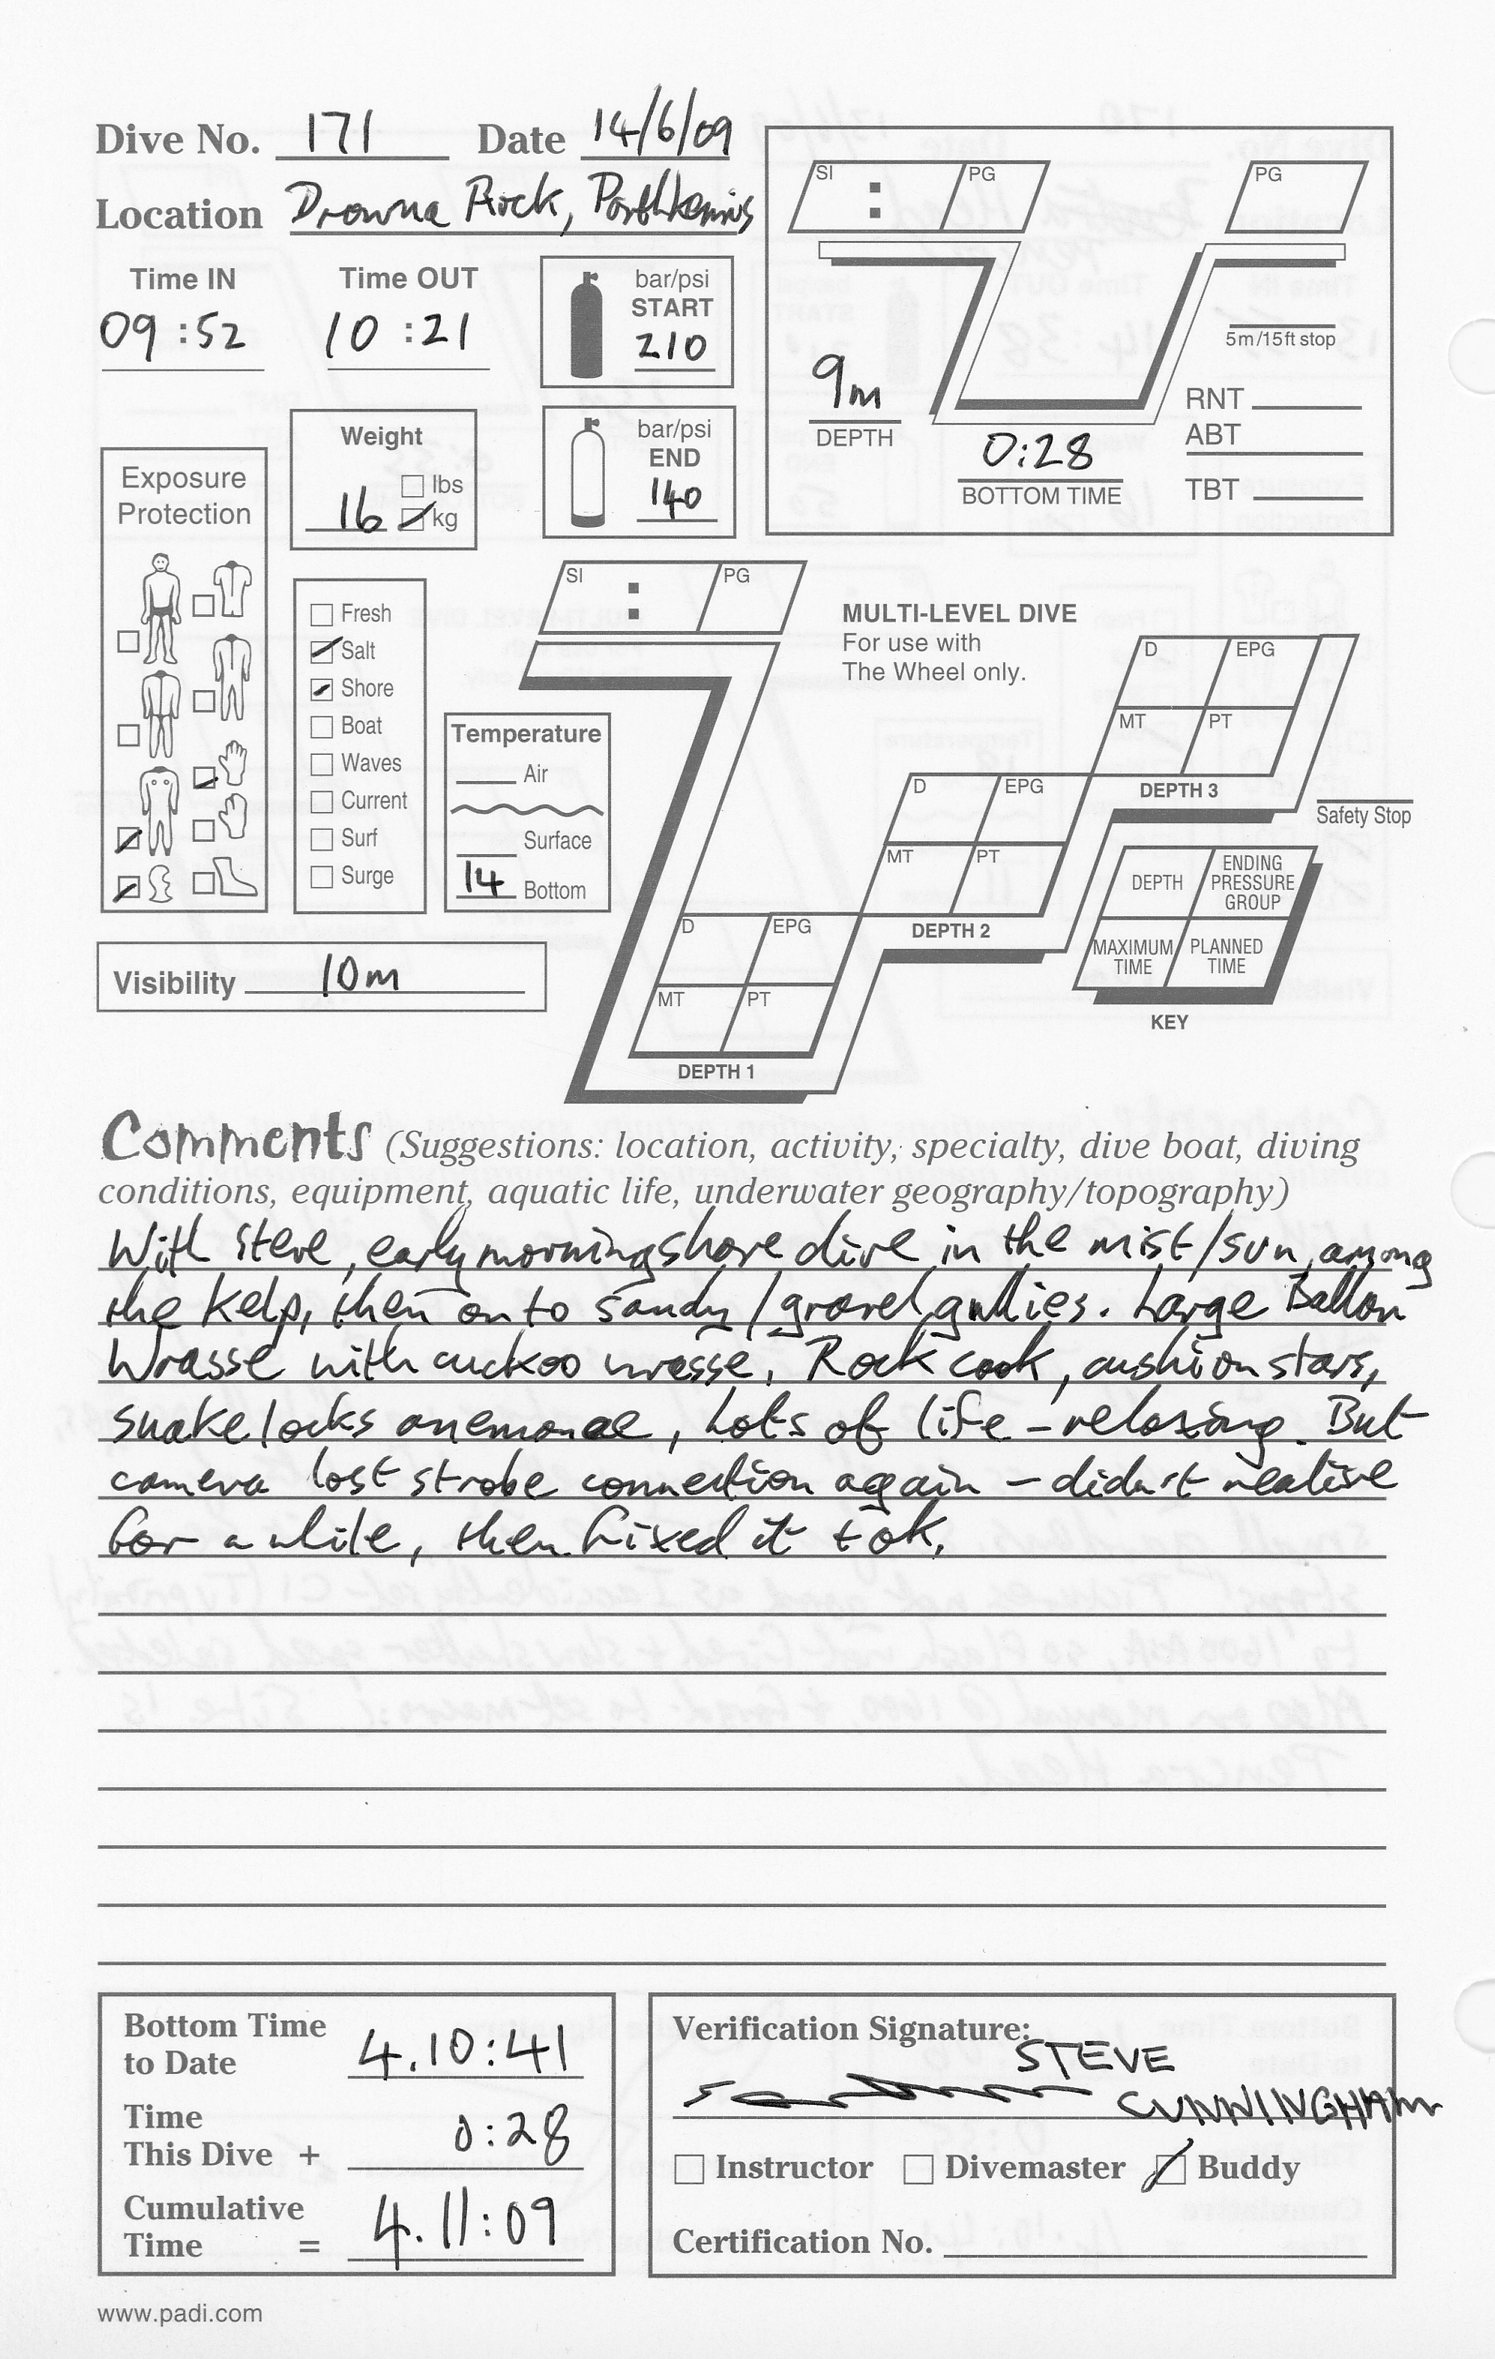 Dive No. 171 Date 14/6/09
Location Drowna Rock, Porthkerris
Time IN Time OUT
09:52 10:21
bar/psi
START
210
bar/psi
END
140
Weight
lbs
16 kg
Exposure
Protection
Fresh
Salt
Shore
Boat
Waves
Current
Surf
Surge
Temperature
Air
Surface
14 Bottom
Visibility 10m
SI : PG
PG
9m
DEPTH
0:28
BOTTOM TIME
5m/15ft stop
RNT
ABT
TBT
SI : PG
MULTI-LEVEL DIVE
For use with
The Wheel only.
D EPG
MT PT
DEPTH 3
Safety Stop
D EPG
MT PT
DEPTH 2
D EPG
MT PT
DEPTH 1
DEPTH
ENDING
PRESSURE
GROUP
MAXIMUM
TIME
PLANNED
TIME
KEY
Comments (Suggestions: location, activity, specialty, dive boat, diving
conditions, equipment, aquatic life, underwater geography/topography)
With Steve, early morning shore dive in the mist/sun, among
the kelp, then on to sandy/gravel gullies. Large Ballan
Wrasse with cuckoo wrasse, Rock cook, cushion stars,
snakelocks anemonae, Lots of life – relaxing. But
camera lost strobe connection again – didn't realise
for a while, then fixed it + ok.
Bottom Time
to Date 4.10:41
Time
This Dive + 0:28
Cumulative
Time = 4.11:09
Verification Signature:
STEVE
CUNNINGHAM
Instructor Divemaster Buddy
Certification No.
www.padi.com